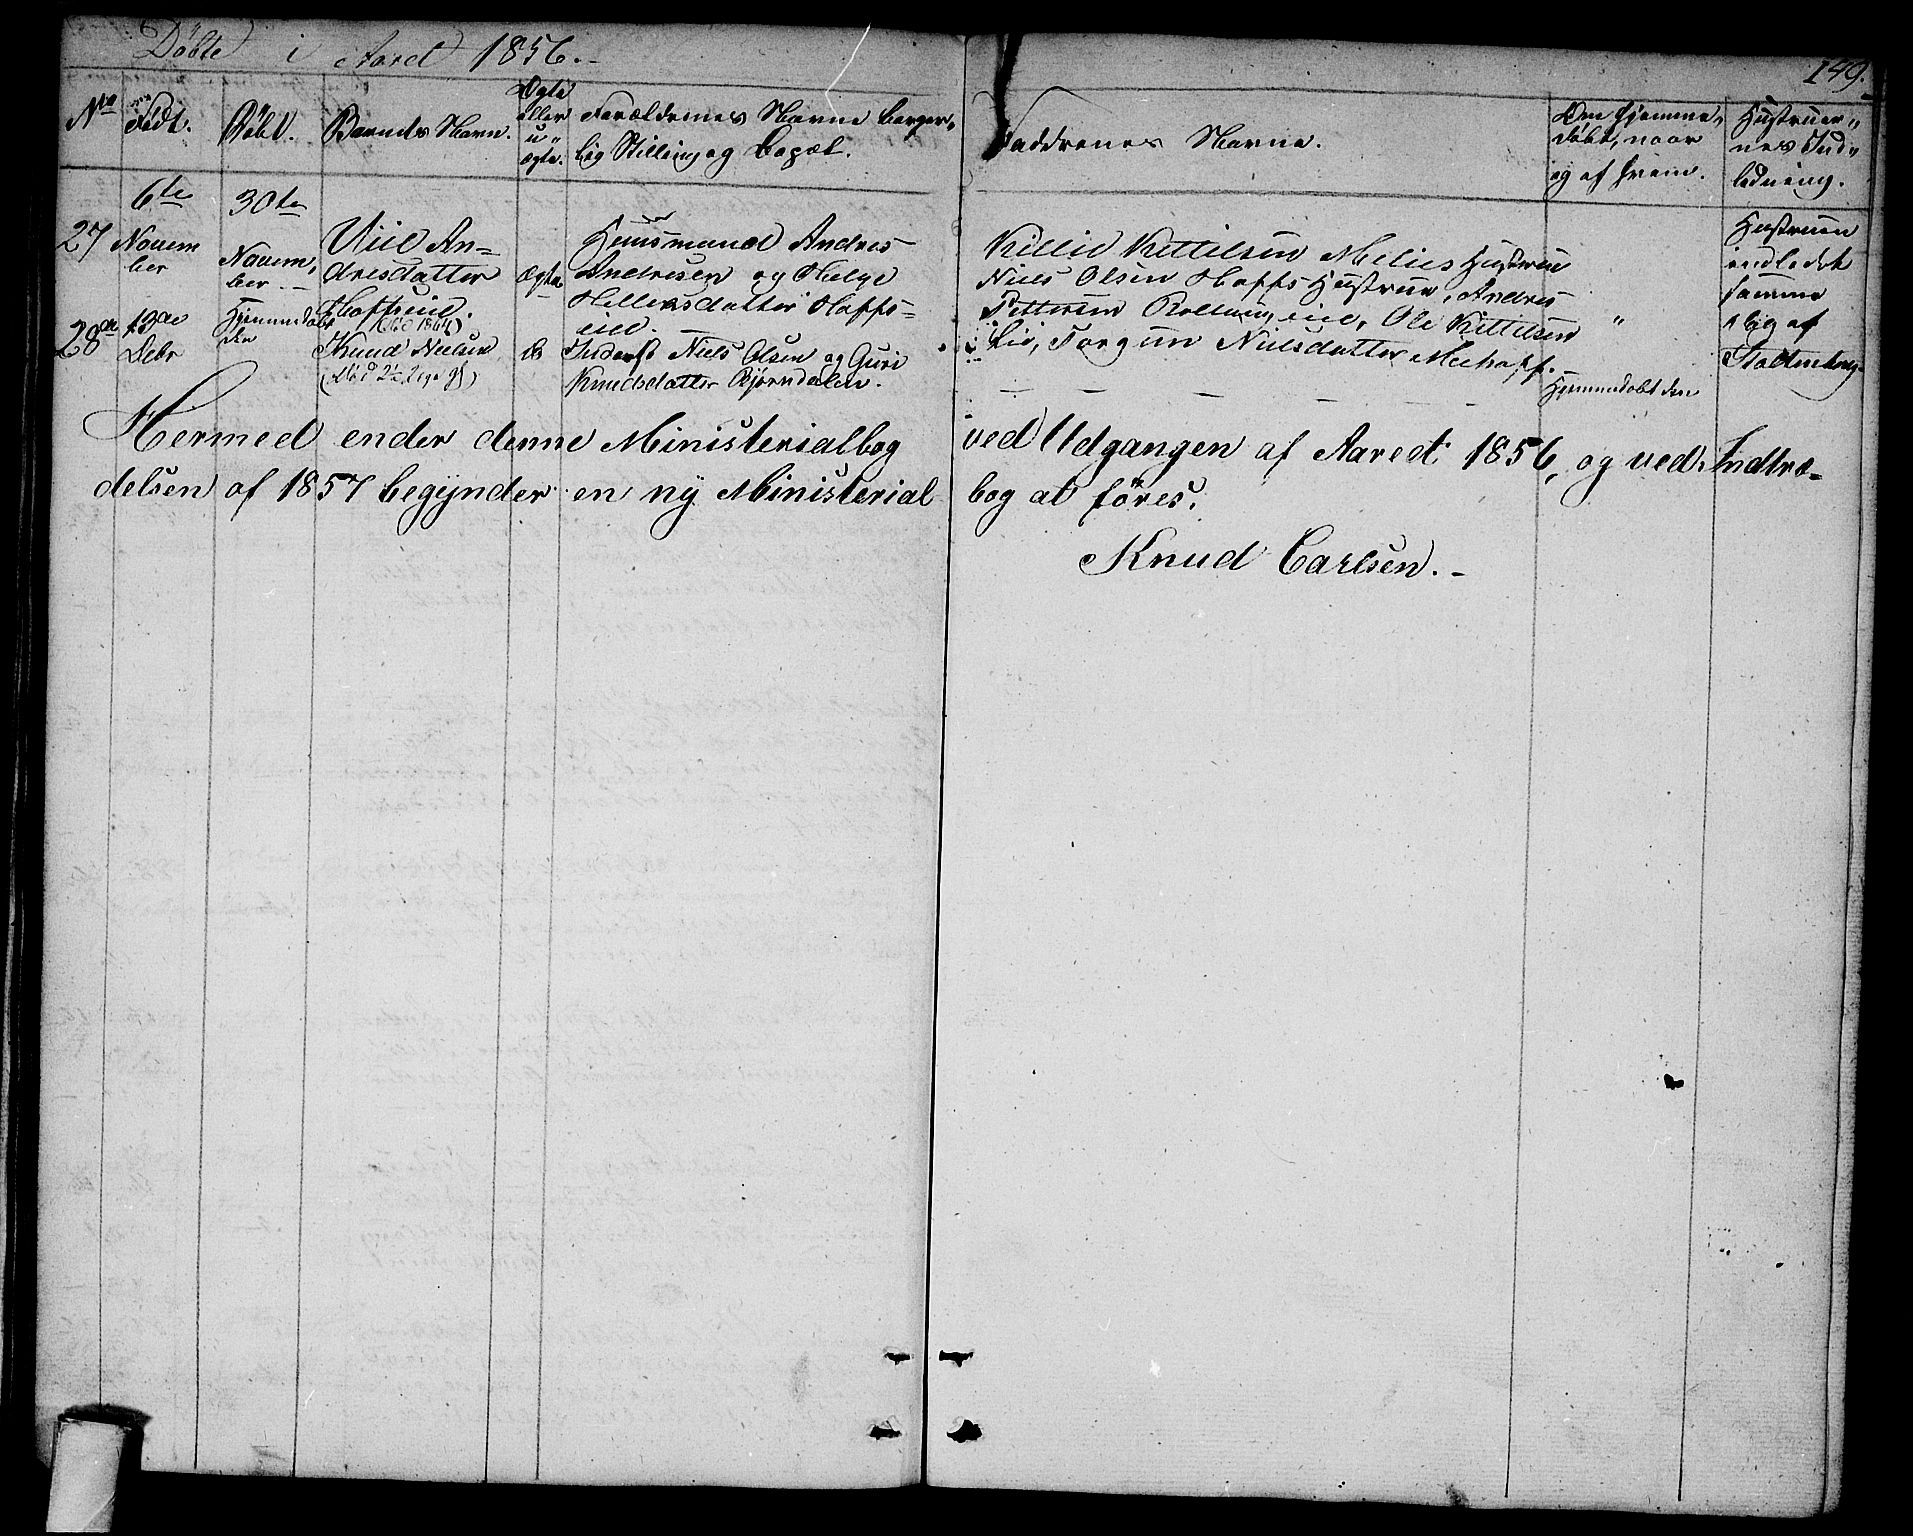 Döbte i Aaret 1856.
149.
No
Födt.
Döbt.
Barnets Navn.
Ægte
eller
u-
ægte.
Forældrenes Navne borger-
lig Stilling og Bopæl.
Faddrenes Navne.
Om hjemme-
döbt, naar
og af hvem.
Hustruer-
nes Ind-
ledning.
27
6te
Novem
ber
30te
Novem-
ber.
An-
dresdatter
Hoffseie.
(död 1864)
Ægte
Huusmand Andres
Andresen og Helge
Hellersdatter Hoffs-
eie.
Kittil Kittilsen Melies Hustrue
Niels Olsen Hoffs Hustrue, Andres
Pettersen eie, Ole Kittilsen
Lie, Torgun Nielsdatter
"
Hustruen
indledet
samme
Dag af
28de
13de
Debr
Hjemmedöbt
den
Knud Nielsen
Inderst Niels Olsen og Guri
Knudsdatter Björndalen.
Hjemmedöbt den
Hermed ender denne Ministerialbog ved Udgangen af Aaret 1856, og ved Indtræ-
delsen af 1857 begynder en ny Ministerial bog at föres.
Knud Carlsen.